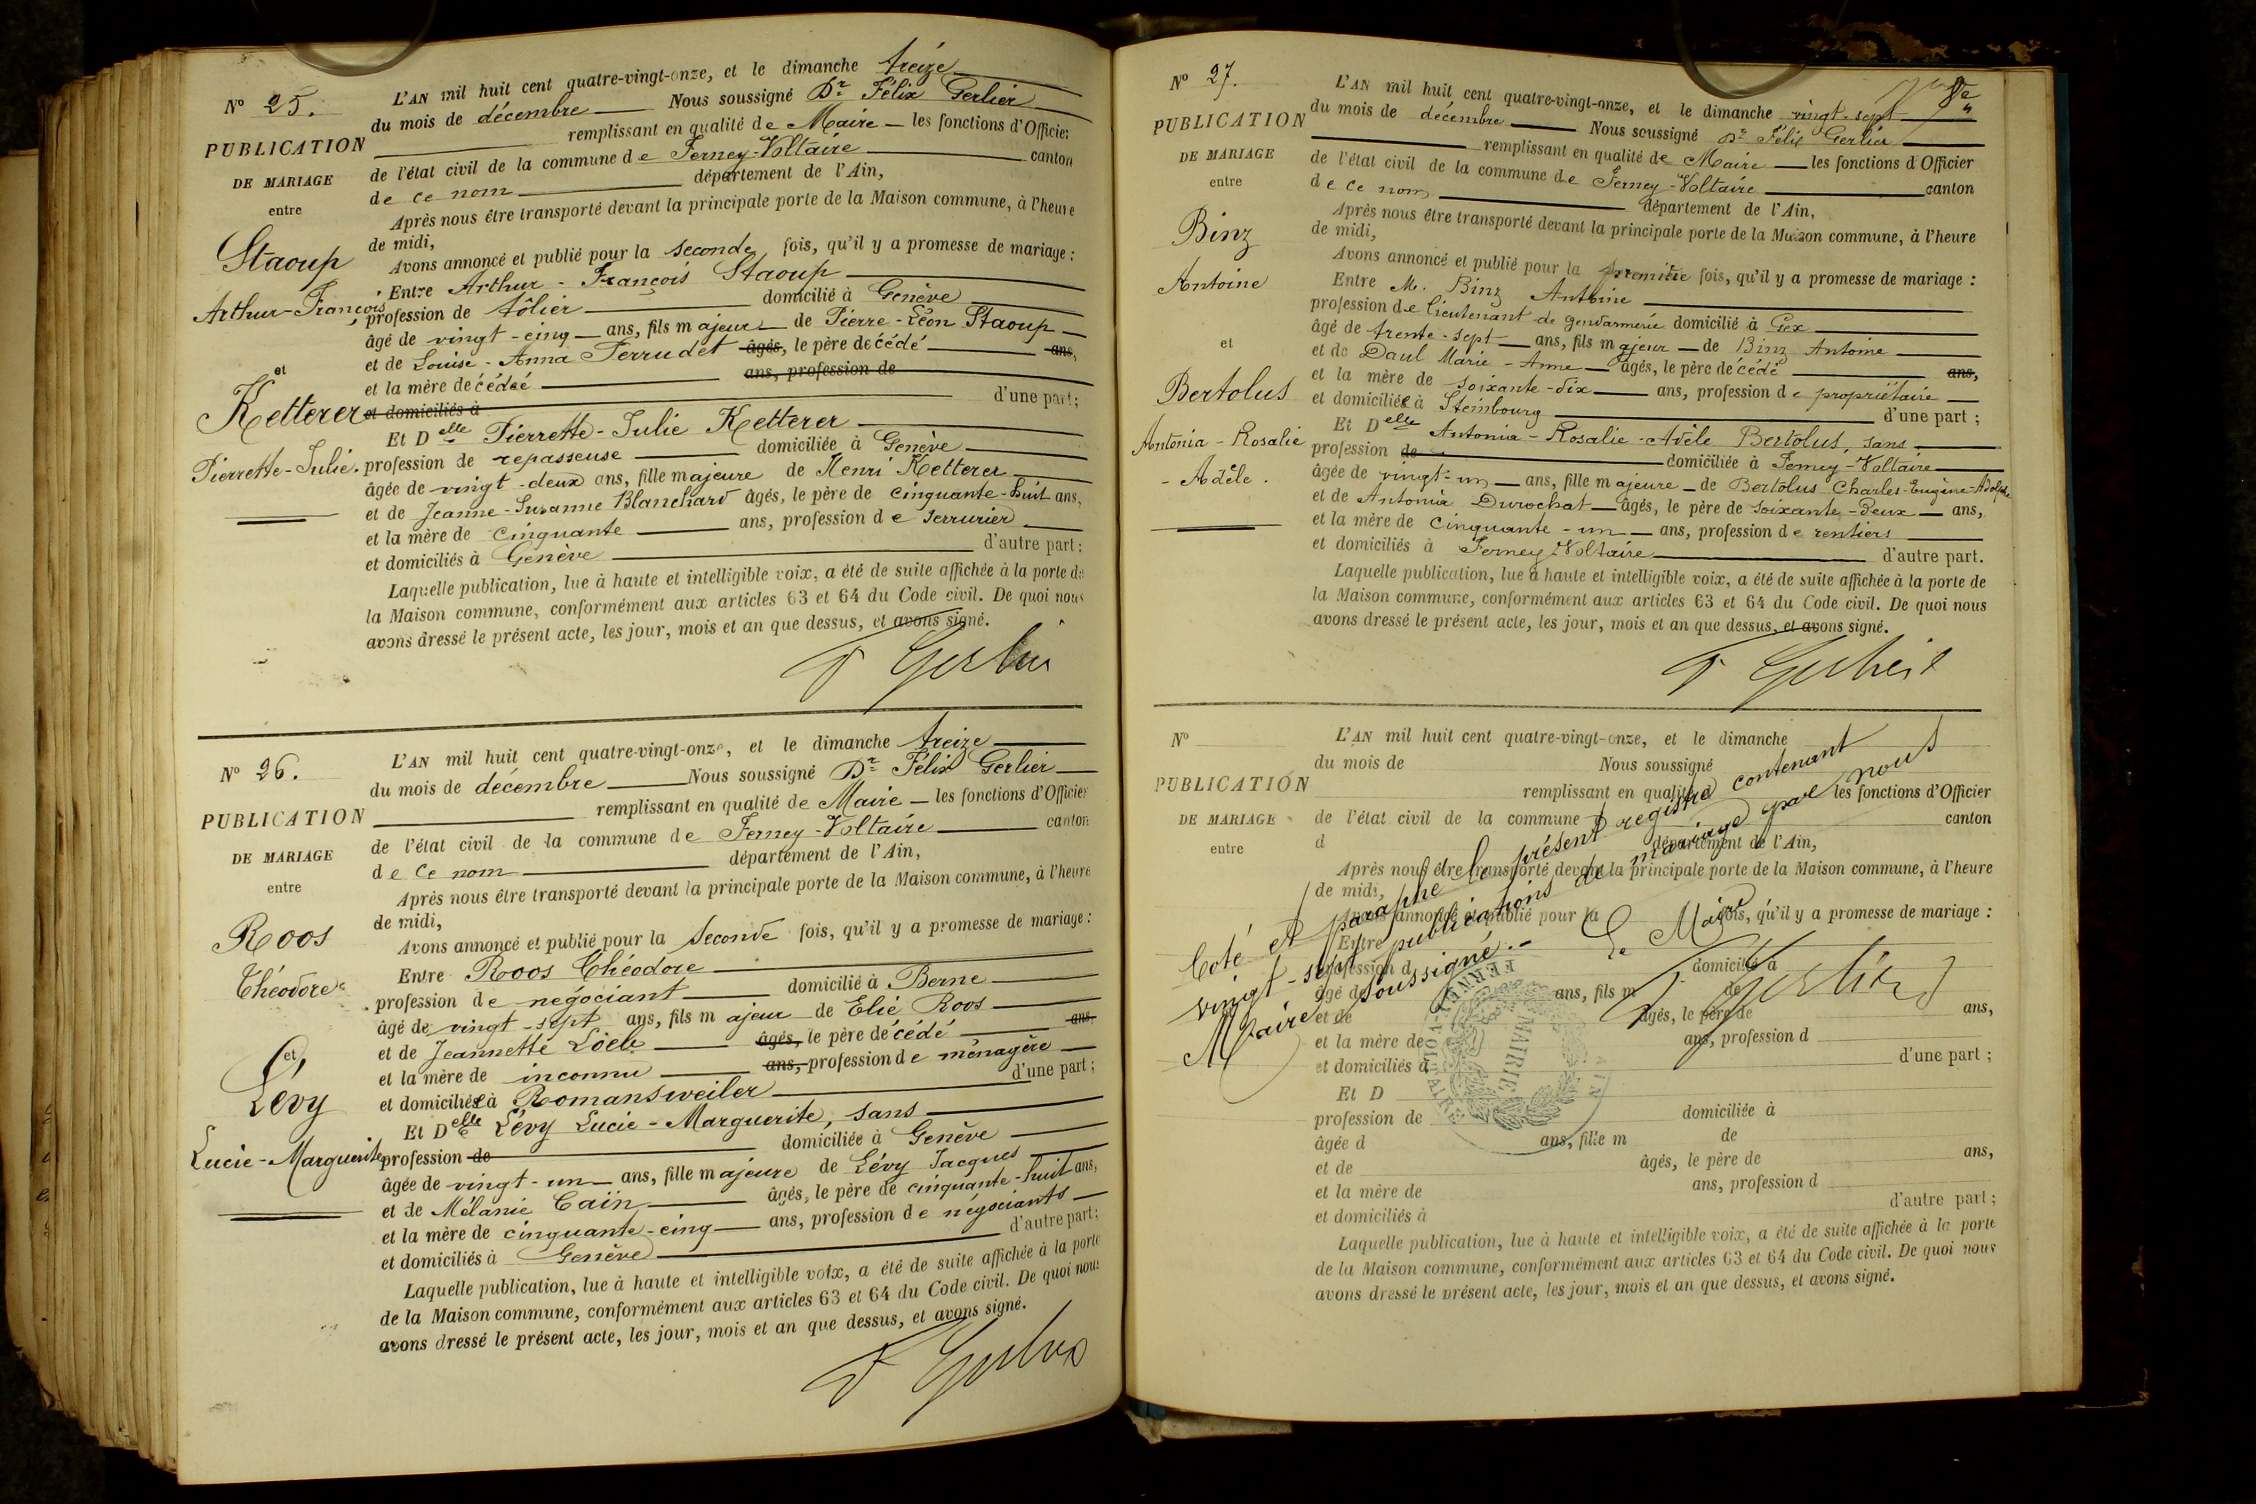 N° 25.
PUBLICATION
DE MARIAGE
entre
Staoup
Arthur-François
et
Ketterer
Pierrette-Julie.
L'AN mil huit cent quatre-vingt-onze, et le dimanche treize
du mois de décembre Nous soussigné Dr Félix Gerlier
remplissant en qualité de Maire les fonctions d'Officier
de l'état civil de la commune de Ferney-Voltaire canton
de ce nom département de l'Ain,
Après nous être transporté devant la principale porte de la Maison commune, à l'heure
de midi,
Avons annoncé et publié pour la seconde fois, qu'il y a promesse de mariage :
Entre Arthur-François Staoup
profession de tôlier domicilié à Genève
âgé de vingt-cinq ans, fils majeur de Pierre-Léon Staoup
et de Louise-Anna Perrudet âgés, le père décédé ans,
et la mère décédée ans, profession de
et domiciliés à d'une part;
Et Delle Pierrette-Julie Ketterer
profession de repasseuse domiciliée à Genève
âgée de vingt-deux ans, fille majeure de Henri Ketterer
et de Jeanne-Suzanne Blanchard âgés, le père de cinquante-huit ans,
et la mère de cinquante ans, profession de serrurier
et domiciliés à Genève d'autre part;
Laquelle publication, lue à haute et intelligible voix, a été de suite affichée à la porte de
la Maison commune, conformément aux articles 63 et 64 du Code civil. De quoi nous
avons dressé le présent acte, les jour, mois et an que dessus, et avons signé.
F Gerlier
N° 26.
PUBLICATION
DE MARIAGE
entre
Roos
Théodore
et
Lévy
Lucie-Marguerite
L'AN mil huit cent quatre-vingt-onze, et le dimanche treize
du mois de décembre Nous soussigné Dr Félix Gerlier
remplissant en qualité de Maire les fonctions d'Officier
de l'état civil de la commune de Ferney-Voltaire canton
de ce nom département de l'Ain,
Après nous être transporté devant la principale porte de la Maison commune, à l'heure
de midi,
Avons annoncé et publié pour la seconde fois, qu'il y a promesse de mariage :
Entre Roos Théodore
profession de négociant domicilié à Berne
âgé de vingt-sept ans, fils majeur de Elie Roos
et de Jeannette Loeb âgés, le père décédé ans,
et la mère de inconnu ans, profession de ménagère
et domiciliée à Romansweiler d'une part;
Et Delle Lévy Lucie-Marguerite, sans
profession de domiciliée à Genève
âgée de vingt-un ans, fille majeure de Lévy Jacques
et de Mélanie Caïn âgés, le père de cinquante-huit ans,
et la mère de cinquante-cinq ans, profession de négociants
et domiciliés à Genève d'autre part;
Laquelle publication, lue à haute et intelligible voix, a été de suite affichée à la porte
de la Maison commune, conformément aux articles 63 et 64 du Code civil. De quoi nous
avons dressé le présent acte, les jour, mois et an que dessus, et avons signé.
F Gerlier
N° 27.
PUBLICATION
DE MARIAGE
entre
Binz
Antoine
et
Bertolus
Antonia-Rosalie
-Adèle.
L'AN mil huit cent quatre-vingt-onze, et le dimanche vingt-sept
du mois de décembre Nous soussigné Dr Félix Gerlier
remplissant en qualité de Maire les fonctions d'Officier
de l'état civil de la commune de Ferney-Voltaire canton
de ce nom département de l'Ain,
Après nous être transporté devant la principale porte de la Maison commune, à l'heure
de midi,
Avons annoncé et publié pour la première fois, qu'il y a promesse de mariage :
Entre M. Binz Antoine
profession de lieutenant de gendarmerie domicilié à Gex
âgé de trente-sept ans, fils majeur de Binz Antoine
et de Daul Marie-Anne âgés, le père décédé ans,
et la mère de soixante-dix ans, profession de propriétaire
et domiciliée à Steinbourg d'une part;
Et Delle Antonia-Rosalie-Adèle Bertolus, sans
profession de domiciliée à Ferney-Voltaire
âgée de vingt-un ans, fille majeure de Bertolus Charles-Eugène-Adolphe
et de Antonia Durochat âgés, le père de soixante-deux ans,
et la mère de cinquante-un ans, profession de rentiers
et domiciliés à Ferney-Voltaire d'autre part.
Laquelle publication, lue à haute et intelligible voix, a été de suite affichée à la porte de
la Maison commune, conformément aux articles 63 et 64 du Code civil. De quoi nous
avons dressé le présent acte, les jour, mois et an que dessus, et avons signé.
F Gerlier
N°
PUBLICATION
DE MARIAGE
entre
L'AN mil huit cent quatre-vingt-onze, et le dimanche
du mois de Nous soussigné
remplissant en qualité d les fonctions d'Officier
de l'état civil de la commune d canton
d département de l'Ain,
Après nous être transporté devant la principale porte de la Maison commune, à l'heure
de midi,
Avons annoncé et publié pour la fois, qu'il y a promesse de mariage :
Entre
profession d domicilié à
âgé de ans, fils m de
et de âgés, le père de ans,
et la mère de ans, profession d
et domiciliés à d'une part;
Et D
profession de domiciliée à
âgée d ans, fille m de
et de âgés, le père de ans,
et la mère de ans, profession d
et domiciliés à d'autre part;
Laquelle publication, lue à haute et intelligible voix, a été de suite affichée à la porte
de la Maison commune, conformément aux articles 63 et 64 du Code civil. De quoi nous
avons dressé le présent acte, les jour, mois et an que dessus, et avons signé.
Coté et paraphé le présent registre contenant
vingt-sept publications de mariage par nous
Maire soussigné.-
Le Maire
F Gerlier
MAIRIE
FERNEY-VOLTAIRE
AIN